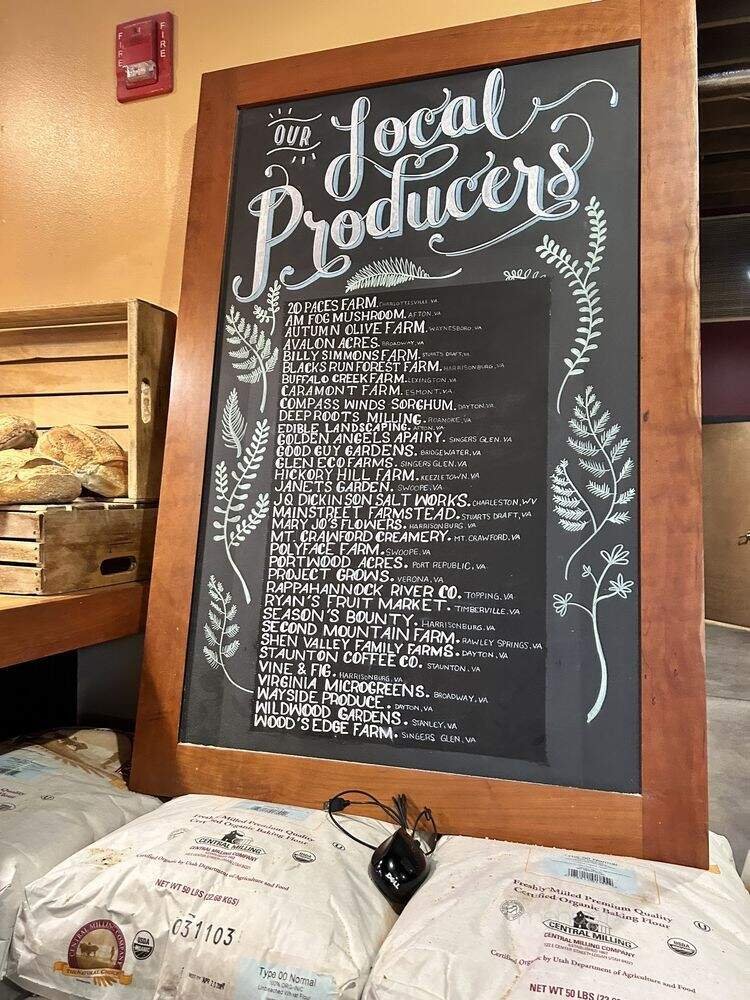 FIRE
FIRE
OUR
Local
Producers
20 PACES FARM. CHARLOTTESVILLE, VA
AM FOG MUSHROOM. AFTON, VA
AUTUMN OLIVE FARM. WAYNESBORO, VA
AVALON ACRES. BROADWAY, VA
BILLY SIMMONS FARM. STUARTS DRAFT, VA
BLACKS RUN FOREST FARM. HARRISONBURG, VA
BUFFALO CREEK FARM. LEXINGTON, VA
CARAMONT FARM. ESMONT, VA
COMPASS WINDS SORGHUM. DAYTON, VA
DEEP ROOTS MILLING. ROANOKE, VA
EDIBLE LANDSCAPING. AFTON, VA
GOLDEN ANGELS APAIRY. SINGERS GLEN, VA
GOOD GUY GARDENS. BRIDGEWATER, VA
GLEN ECO FARMS. SINGERS GLEN, VA
HICKORY HILL FARM. KEEZLETOWN, VA
JANET'S GARDEN. SWOOPE, VA
J.Q. DICKINSON SALT WORKS. CHARLESTON, WV
MAINSTREET FARMSTEAD. STUARTS DRAFT, VA
MARY JO'S FLOWERS. HARRISONBURG, VA
MT. CRAWFORD CREAMERY. MT. CRAWFORD, VA
POLYFACE FARM. SWOOPE, VA
PORTWOOD ACRES. PORT REPUBLIC, VA
PROJECT GROWS. VERONA, VA
RAPPAHANNOCK RIVER CO. TOPPING, VA
RYAN'S FRUIT MARKET. TIMBERVILLE, VA
SEASON'S BOUNTY. HARRISONBURG, VA
SECOND MOUNTAIN FARM. RAWLEY SPRINGS, VA
SHEN VALLEY FAMILY FARMS. DAYTON, VA
STAUNTON COFFEE CO. STAUNTON, VA
VINE & FIG. HARRISONBURG, VA
VIRGINIA MICROGREENS. BROADWAY, VA
WAYSIDE PRODUCE. DAYTON, VA
WILDWOOD GARDENS. STANLEY, VA
WOOD'S EDGE FARM. SINGERS GLEN, VA
DELL
Freshly Milled Premium Quality
Certified Organic Baking Flour
CENTRAL MILLING
CENTRAL MILLING COMPANY
Certified Organic by Utah Department of Agriculture and Food
NET WT 50 LBS (22.68 KGS)
031103
CENTRAL MILLING COMPANY
USDA
ORGANIC
Type 00 Normal
100% ORGANIC
Unbleached Wheat Flour
Freshly Milled Premium Quality
Certified Organic Baking Flour
CENTRAL MILLING
CENTRAL MILLING COMPANY
USDA
Certified Organic by Utah Department of Agriculture and Food
NET WT 50 LBS